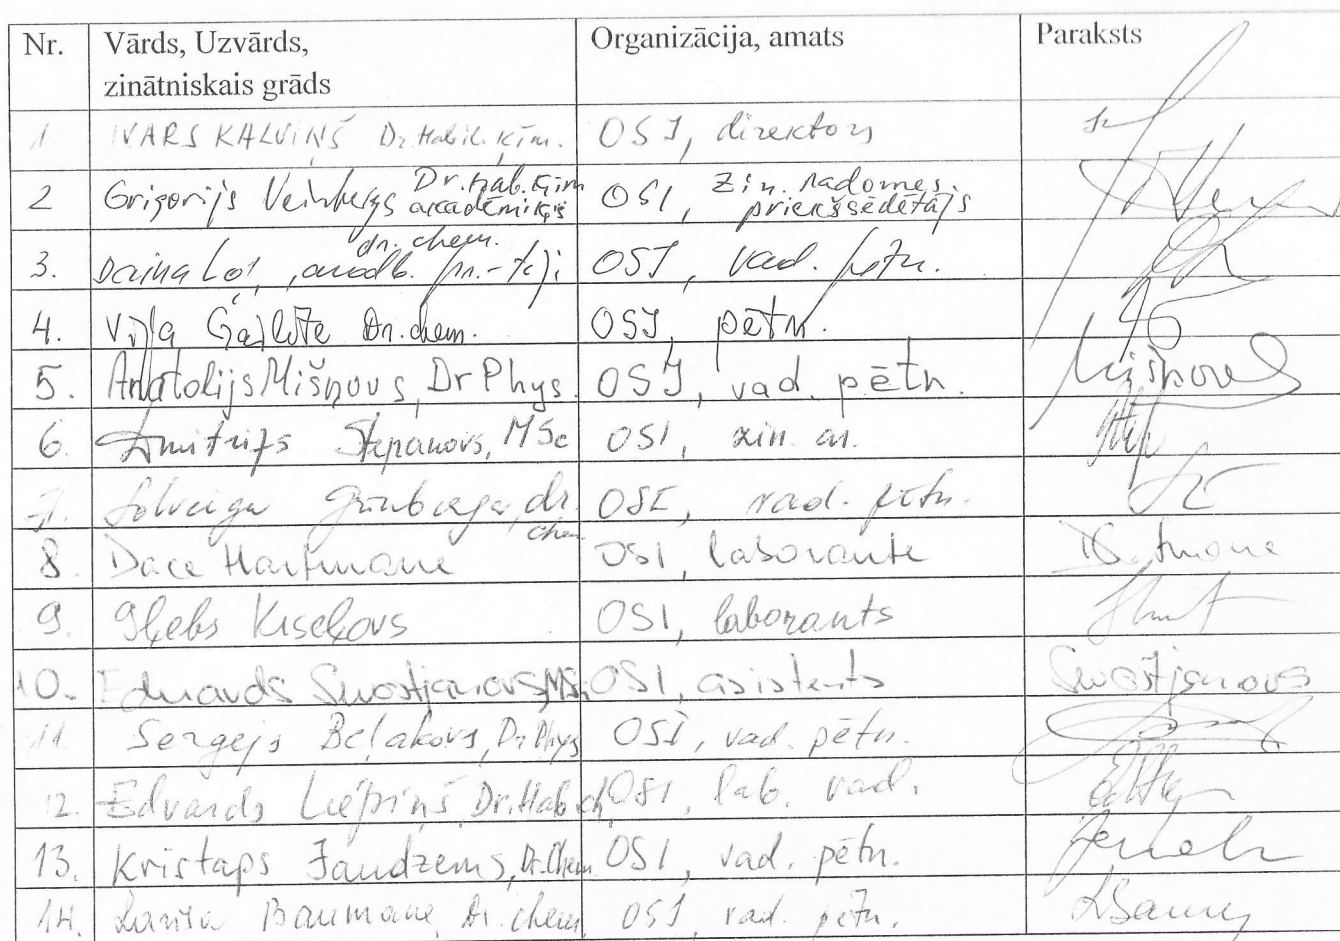 Nr. Vārds, Uzvārds, Organizācija, amats Paraksts
zinātniskais grāds
1. IVARS KALVIŅŠ Dr.Habil.ķīm. OSI, direktors
2 Grigorijs Veinbergs Dr.hab.ķīm akadēmiķis OSI, Zin. padomes priekšsēdētājs
3. Daina dr. chem. OSI, vad. pētn.
4. Vija Gailīte Dr.chem. OSI, pētn.
5. Anatolijs Mišņovs, Dr Phys. OSI, vad. pētn. Mišņovs
6. Dmitrijs Stepanovs, MSc OSI, zin. as.
7. Solveiga Grīnberga, dr. chem OSI, vad. pētn.
8. Dace Hartmane OSI, laborante
9. Gļebs Kiseļovs OSI, laborants
10. Eduards Sevostjanovs, MSc OSI, asistents Sevostjanovs
11. Sergejs Beļakovs, Dr Phys OSI, vad. pētn.
12. Edvards Liepiņš, Dr.Hab.ch, OSI, lab. vad.
13. Kristaps Jaudzems, Dr.Chem OSI, vad. pētn.
14. Larisa Baumane, Dr. chem, OSI, vad. pētn.